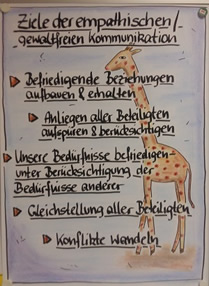 Ziele der empathischen/
gewaltfreien Kommunikation
Befriedigende Beziehungen
aufbauen & erhalten
Anliegen aller Beteiligten
aufspüren & berücksichtigen
Unsere Bedürfnisse befriedigen
unter Berücksichtigung der
Bedürfnisse anderer
Gleichstellung aller Beteiligten
Konflikte wandeln